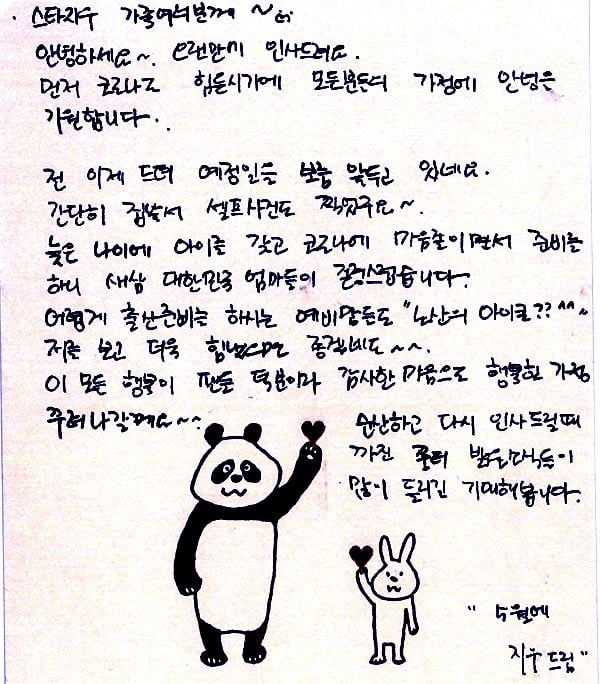 스타지우 가족여러분께~
안녕하세요~. 오랜만에 인사드려요.
먼저 코로나로 힘든시기에 모든분들의 가정에 안녕을
기원합니다.
전 이제 드뎌 예정일을 보름 앞두고 있네요.
간단히 집에서 셀프사진도 찍었구요~.
늦은 나이에 아이를 갖고 코로나에 마음졸이면서 준비를
하니 새삼 대한민국 엄마들이 존경스럽습니다.
어렵게 출산준비를 하시는 예비맘들도 "노산의 아이콘?? ^^~
저를 보고 더욱 힘내시면 좋겠네요~~.
이 모든 행복이 팬들 덕분이라 감사한 마음으로 행복한 가정
꾸려나갈께요~~
순산하고 다시 인사드릴때
까진 밝은소식들이
많이 들리길 기대해봅니다.
"5월에
지우드림"